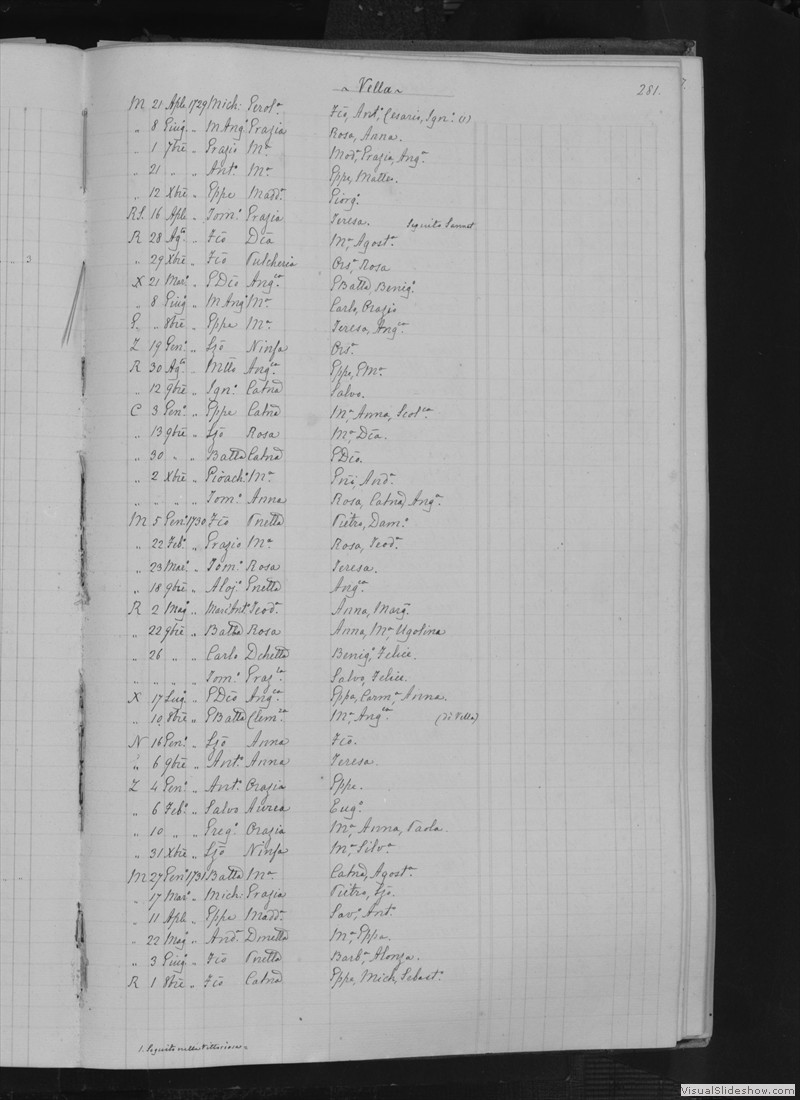 ~ Vella ~
281.
M 21 Aple 1729 Mich: Gerol.a Fčo, Ant.o, Cesario, Ign.o (1)
„ 8 Giug.o „ M Ang.o Grazia Rosa, Anna.
„ 1 7bre „ Grazio M.a Mod.o, Grazia, Ang.a
„ 21 „ „ Ant.o M.a Gppe, Matteo.
„ 12 Xbre „ Gppe Madd.a Giorg.o
R.S. 16 Aple „ Tom.o Grazia Teresa. Seguito Sannat
R 28 Ag.to „ Fčo Dča M.a, Agost.a
„ 29 Xbre „ Fčo Pulcheria Ors.a, Rosa
X 21 Mar.o „ GDčo Ang.ca GBatta, Benig.o
„ 8 Giug.o „ M Ang.o M.a Carlo, Orazio
G. „ 8bre „ Gppe M.a Teresa, Ang.ca
Z 19 Gen.o „ Ljo Ninfa Ors.a
R 30 Ag.to „ Mtto Ang.ca Gppe, GM.a
„ 12 9bre „ Ign.o Catna Salvo.
C 3 Gen.o „ Gppe Catna M.a, Anna, Scol.ca
„ 13 9bre „ Ljo Rosa M.a, Dča.
„ 30 „ „ Batta Catna GDčo.
„ 2 Xbre „ Gioach.o M.a Gni, And.a
„ „ „ „ Tom.o Anna Rosa, Catna, Ang.a
M 5 Gen.o 1730 Fčo Vnetta Pietro, Dam.o
„ 22 Feb.o „ Grazio M.a Rosa, Teod.a
„ 23 Mar.o „ Tom.o Rosa Teresa.
„ 18 9bre „ Aloj.o Gnetta Ang.ca
R 2 Mag.o „ Mari'Ant.o Teod.a Anna, Marg.a
„ 22 9bre „ Batta Rosa Anna, M.a, Ugolina
„ 26 „ „ Carlo Dchetta Benig.o, Felice.
„ „ „ „ Tom.o Graz.la Salvo, Felice.
X 17 Lug.o „ GDčo Ang.ca Gppa, Carm.a, Anna.
„ 10 8bre „ GBatta Clem.za M.a, Ang.ca (Di Vella)
N 16 Gen.o „ Ljo Anna Fčo.
„ 6 9bre „ Ant.o Anna Teresa.
Z 4 Gen.o „ Ant.o Orazia Gppe.
„ 6 Feb.o „ Salvo Aurea Eug.o
„ 10 „ „ Greg.o Orazia M.a, Anna, Paola.
„ 31 Xbre „ Ljo Ninfa M.a, Silv.a
M 27 Gen.o 1731 Batta M.a Catna, Agost.a
„ 17 Mar.o „ Mich: Grazia Pietro, Ljo.
„ 11 Aple „ Gppe Madd.a Sav.o, Ant.o
„ 22 Mag.o „ And.a Dnetta M.a, Gppa.
„ 3 Giug.o „ Fčo Vnetta Barb.a, Alonza.
R 1 8bre „ Fčo Catna Gppe, Mich, Sebast.o
1. Seguito nella Vittoriosa.
VisualSlideshow.com